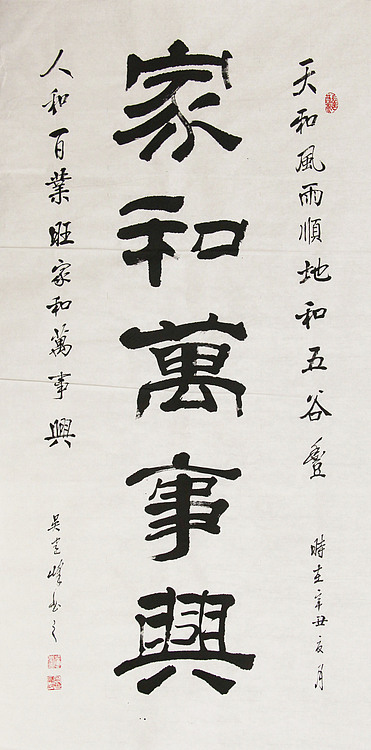 天和風雨順地和五谷豐
時在辛丑夏月
家和萬事興
人和百業旺家和萬事興
吳峰書之